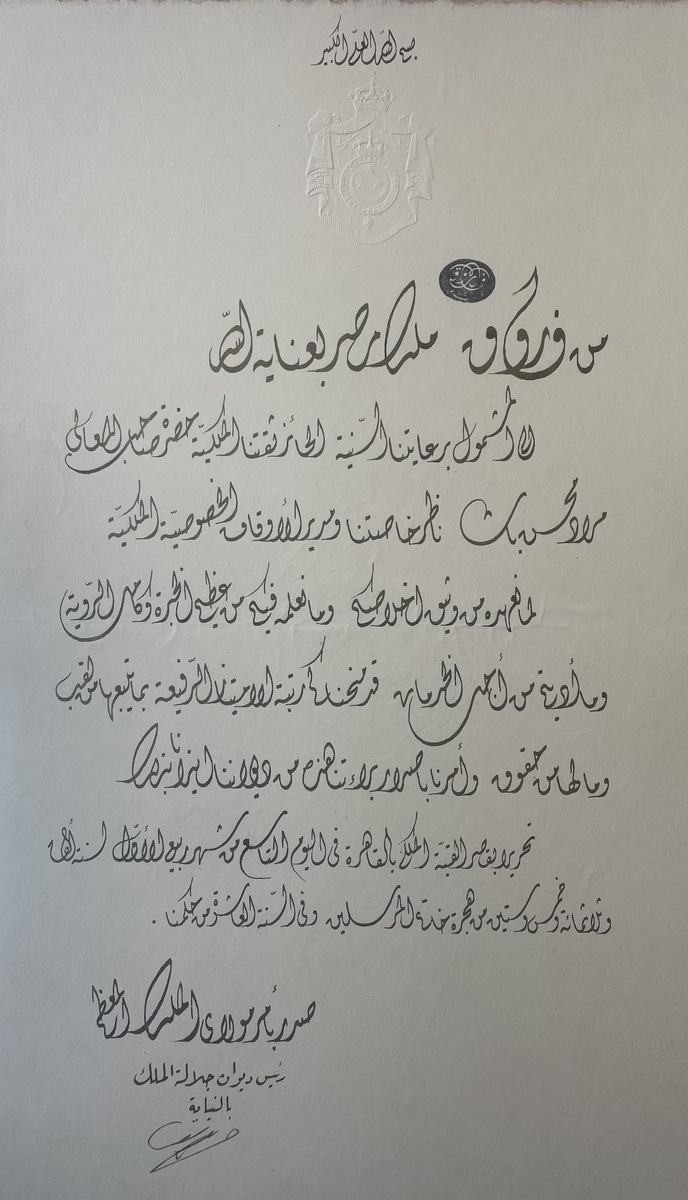 بسم الله العلي الكبير
من فاروق ملك مصر بعناية الله
إلى المشمول برعايتنا السنية الحائز ثقتنا الملكية حضرة صاحب المعالي
مراد محسن بك ناظر خاصتنا ومدير الأوقاف الخصوصية الملكية
لما نعهده من وثيق اخلاصكم وما نعلمه فيكم من عظيم الخبرة وكامل الروية
وما أديتم من أجل الخدمات قد منحناكم رتبة الامتياز الرفيعة بما يتبعها من لقب
وما لها من حقوق وأمرنا باصدار براءتنا هذه من ديواننا ايذانا بذلك
تحريرا بقصر القبة الملكي بالقاهرة فى اليوم التاسع من شهر ربيع الأول لسنة ألف
وثلاثمائة وخمس وستين من هجرة خاتم المرسلين وفى السنة العاشرة من حكمنا .
صدر بأمر مولاى الملك المعظم
رئيس ديوان جلالة الملك
بالنيابة